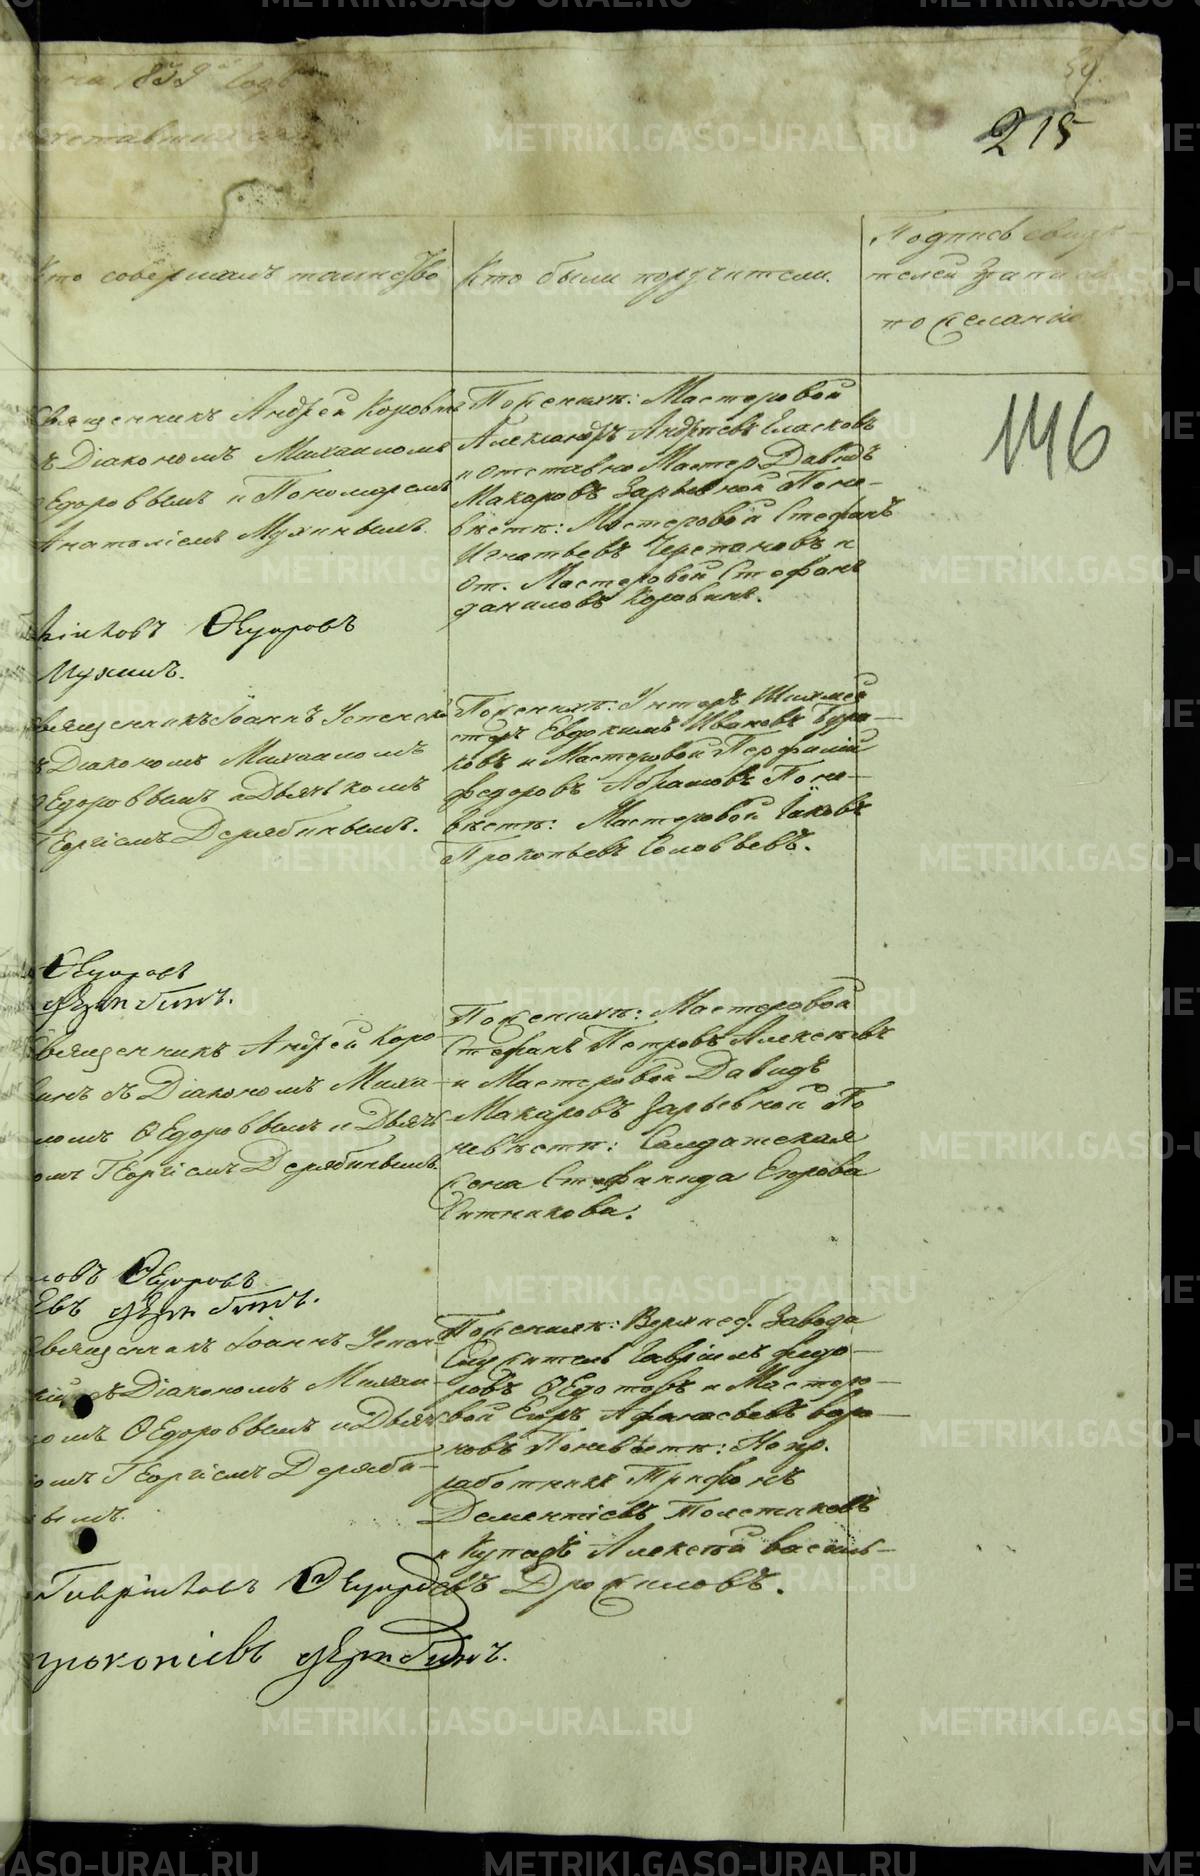 на 1839 Годъ
34.
215
Кто совершалъ таинство
Кто были поручители.
Подпись свидѣ-
телей записи
по желанію
146
Священникъ Андрей Коровинъ
съ Діакономъ Михаиломъ
Ѳедоровымъ и Пономаремъ
Анатоліемъ Мухинымъ.
По женихѣ: Мастеровой
Александръ Андреевъ Гласковъ
и отставной Мастеръ Давидъ
Макаровъ Заръевной По не-
вѣстѣ: Мастеровой Стефанъ
Игнатьевъ Черепановъ и
От. Мастеровой Стефанъ
Даниловъ Коровинъ.
Ѳедоровъ
Мухинъ.
Священникъ Іоаннъ Успенскій
съ Діакономъ Михаиломъ
Ѳедоровымъ и Дьячкомъ
Георгіемъ Дерябинымъ.
По женихѣ: Унтеръ Шихмей
стеръ Евдокимъ Ивановъ Бура-
ковъ и Мастеровой Перфилій
Федоровъ Абрамовъ По не-
вѣстѣ: Мастеровой Іаковъ
Прокопьевъ Соловьевъ.
Ѳедоровъ
Дерябинъ.
Священникъ Андрей Коро-
винъ съ Діакономъ Миха-
иломъ Ѳедоровымъ и Дьяч-
комъ Георгіемъ Дерябинымъ
По женихѣ: Мастеровой
Стефанъ Петровъ Алексѣевъ
и Мастеровой Давидъ
Макаровъ Заръевной По
невѣстѣ: Салдатская
жена Стефанида Егорова
Ситникова.
Ѳедоровъ
Дерябинъ.
Священникъ Іоаннъ Успен-
скій съ Діакономъ Михаи-
ломъ Ѳедоровымъ и Дьяч-
комъ Георгіемъ Деряби-
нымъ.
По женихѣ: Верхнеф. Завода
Служитель Гавріилъ Федо-
ровъ Ѳедотовъ и Мастеро-
вой Егоръ Афанасьевъ Воро-
новъ По невѣстѣ: Непр.
работникъ Трифонъ
Дементіевъ Толстиковъ
и Купецъ Алексѣй Василь-
Дрожиловъ.
Гавріиловъ Ѳедоровъ
Прокопіевъ Дерябинъ.
METRIKI.GASO-URAL.RU